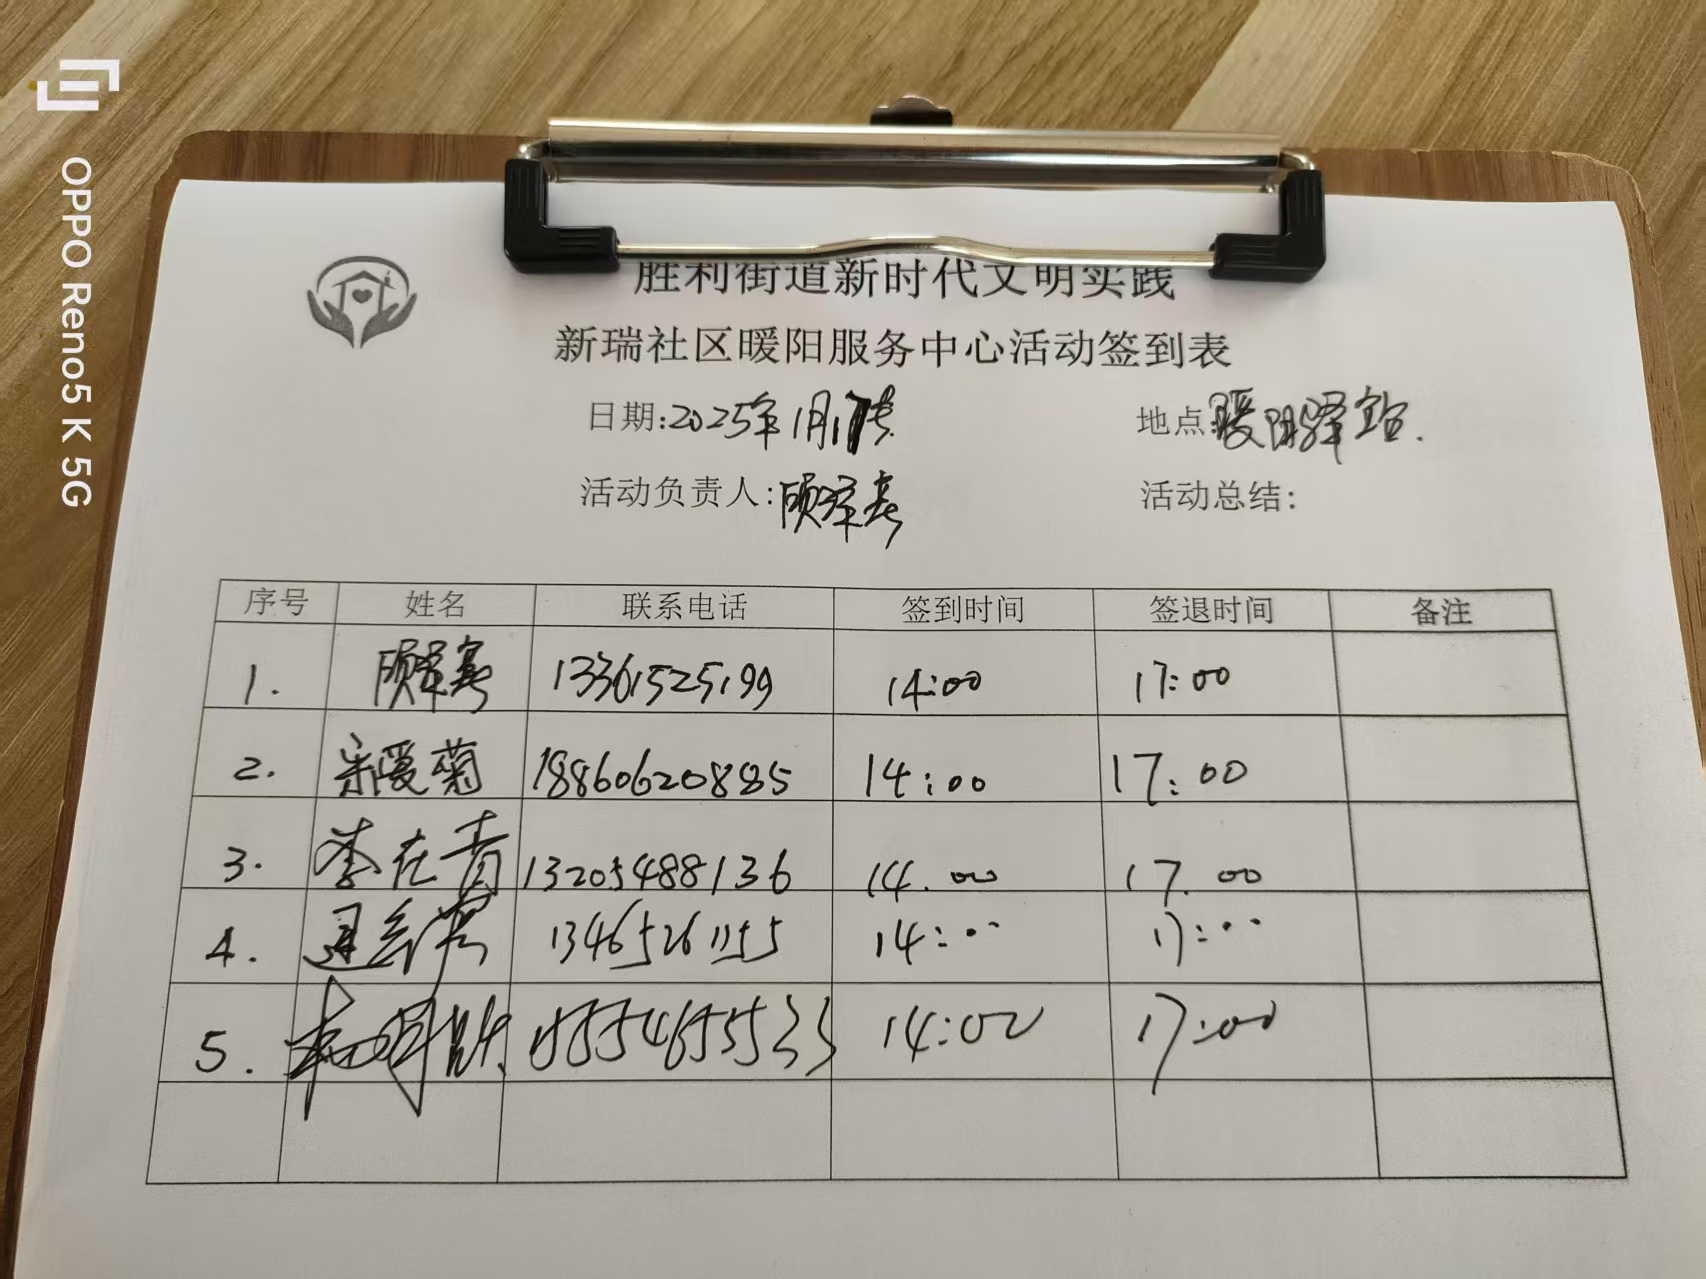 OPPO Reno5 K 5G
胜利街道新时代文明实践
新瑞社区暖阳服务中心活动签到表
日期:2025年1月17号 地点:暖阳驿站.
活动负责人: 活动总结:
序号 姓名 联系电话 签到时间 签退时间 备注
1. 13361525199 14:00 17:00
2. 宋爱菊 18860620885 14:00 17:00
3. 李在青 13205488136 14.00 17.00
4. 13465261155 14:00 17:00
5. 14:00 17:00